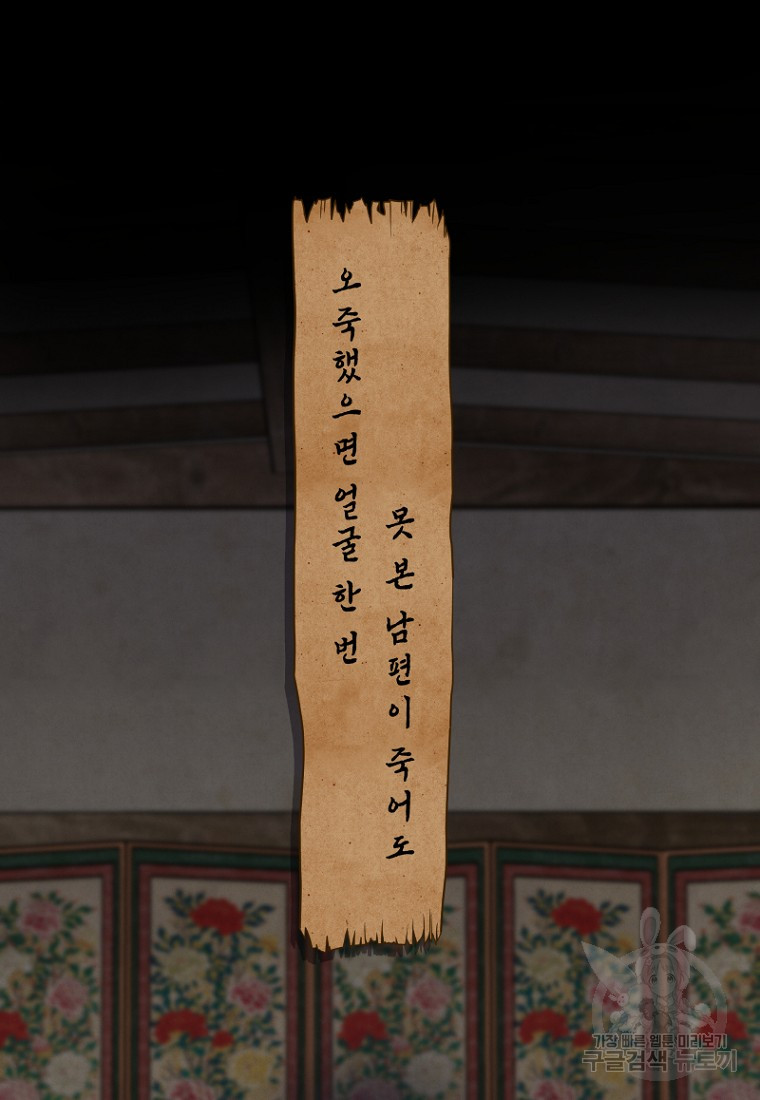 오죽했으면 얼굴 한 번
못 본 남편이 죽어도
가장 빠른 웹툰 미리보기
구글검색 뉴토끼